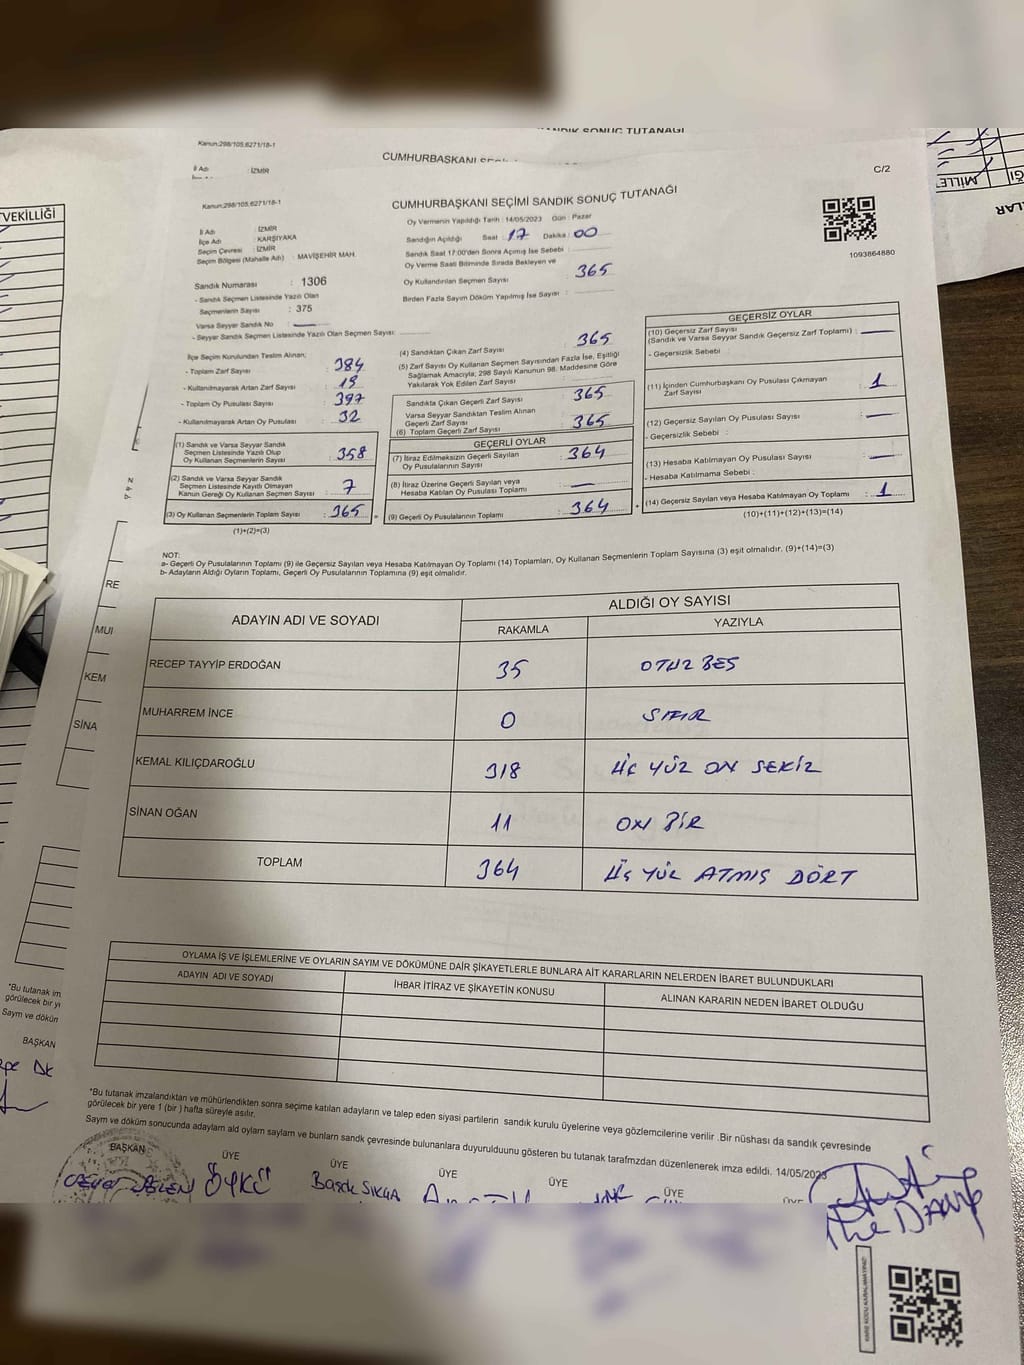 SANDIK SONUÇ TUTANAĞI
Kanun:298/105,6271/18-1
CUMHURBAŞKANI
İl Adı : İZMİR
C/2
Kanun:298/105,6271/18-1
CUMHURBAŞKANI SEÇİMİ SANDIK SONUÇ TUTANAĞI
Oy Vermenin Yapıldığı Tarih : 14/05/2023 Gün : Pazar
İl Adı : İZMİR
İlçe Adı : KARŞIYAKA
Seçim Çevresi : İZMİR
Seçim Bölgesi (Mahalle Adı) : MAVİŞEHİR MAH.
Sandığın Açıldığı Saat : 17 Dakika : 00
Sandık Saat 17:00'den Sonra Açımış İse Sebebi :
Oy Verme Saati Bitiminde Sırada Bekleyen ve
Oy Kullandırılan Seçmen Sayısı : 365
Birden Fazla Sayım Döküm Yapılmış İse Sayısı :
1093864880
Sandık Numarası : 1306
- Sandık Seçmen Listesinde Yazılı Olan
Seçmenlerin Sayısı : 375
Varsa Seyyar Sandık No : —
- Seyyar Sandık Seçmen Listesinde Yazılı Olan Seçmen Sayısı:
İlçe Seçim Kurulundan Teslim Alınan;
- Toplam Zarf Sayısı : 384
- Kullanılmayarak Artan Zarf Sayısı : 19
- Toplam Oy Pusulası Sayısı : 397
- Kullanılmayarak Artan Oy Pusulası : 32
(1) Sandık ve Varsa Seyyar Sandık
Seçmen Listesinde Yazılı Olup
Oy Kullanan Seçmenlerin Sayısı : 358
(2) Sandık ve Varsa Seyyar Sandık
Seçmen Listesinde Kayıtlı Olmayan
Kanun Gereği Oy Kullanan Seçmen Sayısı : 7
(3) Oy Kullanan Seçmenlerin Toplam Sayısı : 365
(1)+(2)=(3)
(4) Sandıktan Çıkan Zarf Sayısı : 365
(5) Zarf Sayısı Oy Kullanan Seçmen Sayısından Fazla İse, Eşitliği
Sağlamak Amacıyla; 298 Sayılı Kanunun 98. Maddesine Göre
Yakılarak Yok Edilen Zarf Sayısı :
Sandıkta Çıkan Geçerli Zarf Sayısı : 365
Varsa Seyyar Sandıktan Teslim Alınan
Geçerli Zarf Sayısı :
(6) Toplam Geçerli Zarf Sayısı : 365
GEÇERLİ OYLAR
(7) İtiraz Edilmeksizin Geçerli Sayılan
Oy Pusulalarının Sayısı : 364
(8) İtiraz Üzerine Geçerli Sayılan veya
Hesaba Katılan Oy Pusulası Toplamı : —
(9) Geçerli Oy Pusulalarının Toplamı : 364
GEÇERSİZ OYLAR
(10) Geçersiz Zarf Sayısı
(Sandık ve Varsa Seyyar Sandık Geçersiz Zarf Toplamı) : —
- Geçersizlik Sebebi :
(11) İçinden Cumhurbaşkanı Oy Pusulası Çıkmayan
Zarf Sayısı : 1
(12) Geçersiz Sayılan Oy Pusulası Sayısı : —
- Geçersizlik Sebebi :
(13) Hesaba Katılmayan Oy Pusulası Sayısı : —
- Hesaba Katılmama Sebebi :
(14) Geçersiz Sayılan veya Hesaba Katılmayan Oy Toplamı : 1
(10)+(11)+(12)+(13)=(14)
NOT:
a- Geçerli Oy Pusulalarının Toplamı (9) ile Geçersiz Sayılan veya Hesaba Katılmayan Oy Toplamı (14) Toplamları, Oy Kullanan Seçmenlerin Toplam Sayısına (3) eşit olmalıdır. (9)+(14)=(3)
b- Adayların Aldığı Oyların Toplamı, Geçerli Oy Pusulalarının Toplamına (9) eşit olmalıdır.
ADAYIN ADI VE SOYADI ALDIĞI OY SAYISI
RAKAMLA YAZIYLA
RECEP TAYYİP ERDOĞAN 35 OTUZ BEŞ
MUHARREM İNCE 0 SIFIR
KEMAL KILIÇDAROĞLU 318 ÜÇ YÜZ ON SEKİZ
SİNAN OĞAN 11 ON BİR
TOPLAM 364 ÜÇ YÜZ ATMIŞ DÖRT
OYLAMA İŞ VE İŞLEMLERİNE VE OYLARIN SAYIM VE DÖKÜMÜNE DAİR ŞİKAYETLERLE BUNLARA AİT KARARLARIN NELERDEN İBARET BULUNDUKLARI
ADAYIN ADI VE SOYADI İHBAR İTİRAZ VE ŞİKAYETİN KONUSU ALINAN KARARIN NEDEN İBARET OLDUĞU
*Bu tutanak imzalandıktan ve mühürlendikten sonra seçime katılan adayların ve talep eden siyasi partilerin sandık kurulu üyelerine veya gözlemcilerine verilir .Bir nüshası da sandık çevresinde
görülecek bir yere 1 (bir ) hafta süreyle asılır.
Sayım ve döküm sonucunda adayların ald oyların sayılam ve bunların sandk çevresinde bulunanlara duyurulduunu gösteren bu tutanak tarafmzdan düzenlenerek imza edildi. 14/05/2023
BAŞKAN ÜYE ÜYE ÜYE ÜYE ÜYE
ÖYKÜ
VEKİLLİĞİ
RE
MUI
KEM
SİNA
*Bu tutanak im
görülecek bir y
Sayım ve döküm
BAŞKAN
MİLLE